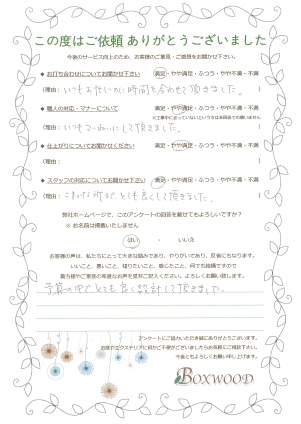 この度はご依頼 ありがとうございました
今後のサービス向上のため、お客様のご意見・ご感想をお聞かせ下さい。
◆ お打ち合わせについてお聞かせ下さい 満足・やや満足・ふつう・やや不満・不満
(理由： いつも忙しいのに時間を合わせて頂きました。 )
◆ 職人の対応・マナーについて 満足・やや満足・ふつう・やや不満・不満
※工事中に会っていないという方は未回答でも構いません。
(理由： いつもていねいにして頂きました。 )
◆ 仕上がりについてお聞かせください 満足・やや満足・ふつう・やや不満・不満
(理由： )
◆ スタッフの対応についてお聞かせ下さい 満足・やや満足・ふつう・やや不満・不満
(理由： とても良くして頂きました。 )
弊社ホームページで、このアンケートの回答を載せてもよろしいですか？
※ お名前は掲載いたしません
はい ・ いいえ
お客様の声は、私たちにとって大きな励みであり、やりがいであり、反省にもなります。
いいこと、悪いこと、知りたいこと、感じたこと、何でも結構ですので
貴方様やご家族の率直なお声を是非ご記入ください。よろしくお願い致します。
予算の中でとても良く設計して頂きました。
アンケートにご協力いただき誠にありがとうございます。
お庭やエクステリアに何かご不便がございましたらお気軽にご相談下さい。
今後ともよろしくお願い申し上げます。
BOXWOOD